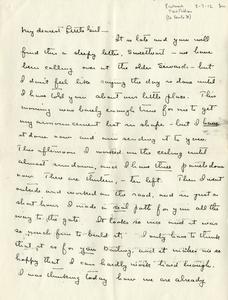 My dearest Little Girl—
It is late and you will
find this a sleepy letter, Sweetheart — we have
been calling over at the older Sewards — but
I don't feel like saying the day is done until
I have told you about our little place. This
morning was barely enough time for me to get
my announcement text in shape — but I have
it done now and am sending it to you.
This afternoon I worked on the ceiling until
almost sundown, and I have three panels down
now. There are thirteen — ten left. Then I went
outside and worked on the road, and in just a
short hour I made a real path for you all the
way to the gate. It looks so nice and it was
so much fun to build it. I only have to think
that it is for you Darling, and it makes me so
happy that I can hardly work hard enough.
I was thinking today how we are already